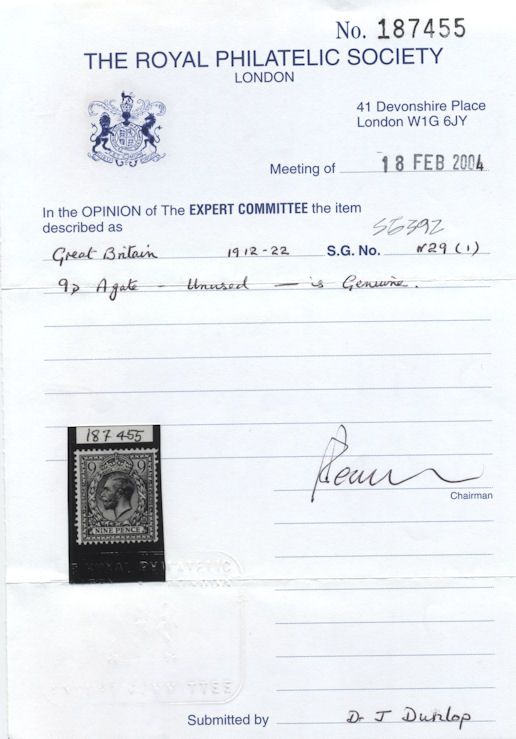 No. 187455
THE ROYAL PHILATELIC SOCIETY
LONDON
41 Devonshire Place
London W1G 6JY
Meeting of 18 FEB 2004
In the OPINION of The EXPERT COMMITTEE the item
described as
Great Britain 1912-22 S.G. No. N29 (1)
9D Agate - Unused - is Genuine.
187455
9 9
NINE PENCE
Chairman
ROYAL PHILATELIC
Submitted by Dr J Dunlop